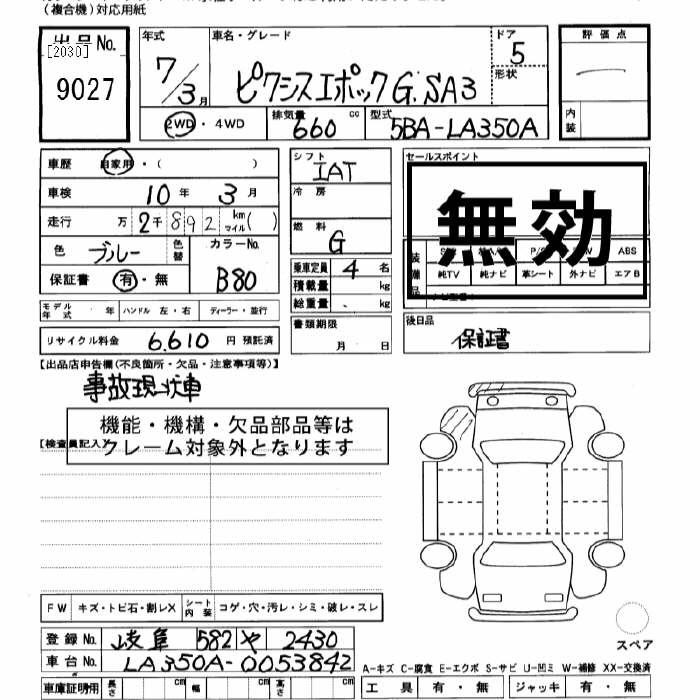 (複合機)対応用紙
出品No.
[2030]
9027
年式 車名・グレード ドア
7/3月 ピクシスエポックG.SA3 5
形状
2WD・4WD 排気量 660 cc 型式 5BA-LA350A
評価点
内装
車歴 自家用・( )
車検 10年 3月
走行 万 2千 892 km マイル( )
色 ブルー 色替 カラーNo.
保証書 有・無 B80
モデル年式 年 ハンドル 左・右 ディーラー・並行
リサイクル料金 6,610 円 預託済
シフト IAT
冷房
燃料 G
乗車定員 4 名
積載量 kg
総重量 kg
書類期限
月 日
セールスポイント
無効
ABS
装備品 純TV 純ナビ 革シート 外ナビ エアB
後日品
保証書
【出品店申告欄(不良箇所・欠品・注意事項等)】
事故現状車
機能・機構・欠品部品等は
クレーム対象外となります
【検査員記入】
FW キズ・トビ石・割レX シート内装 コゲ・穴・汚レ・シミ・破レ・スレ
登録No. 岐阜 582 や 2430
車台No. LA350A-0053842
車庫証明用 長さ cm 幅 cm 高さ cm
スペア
A-キズ C-腐食 E-エクボ S-サビ U-凹ミ W-補修 XX-交換済
工具 有・無 ジャッキ 有・無